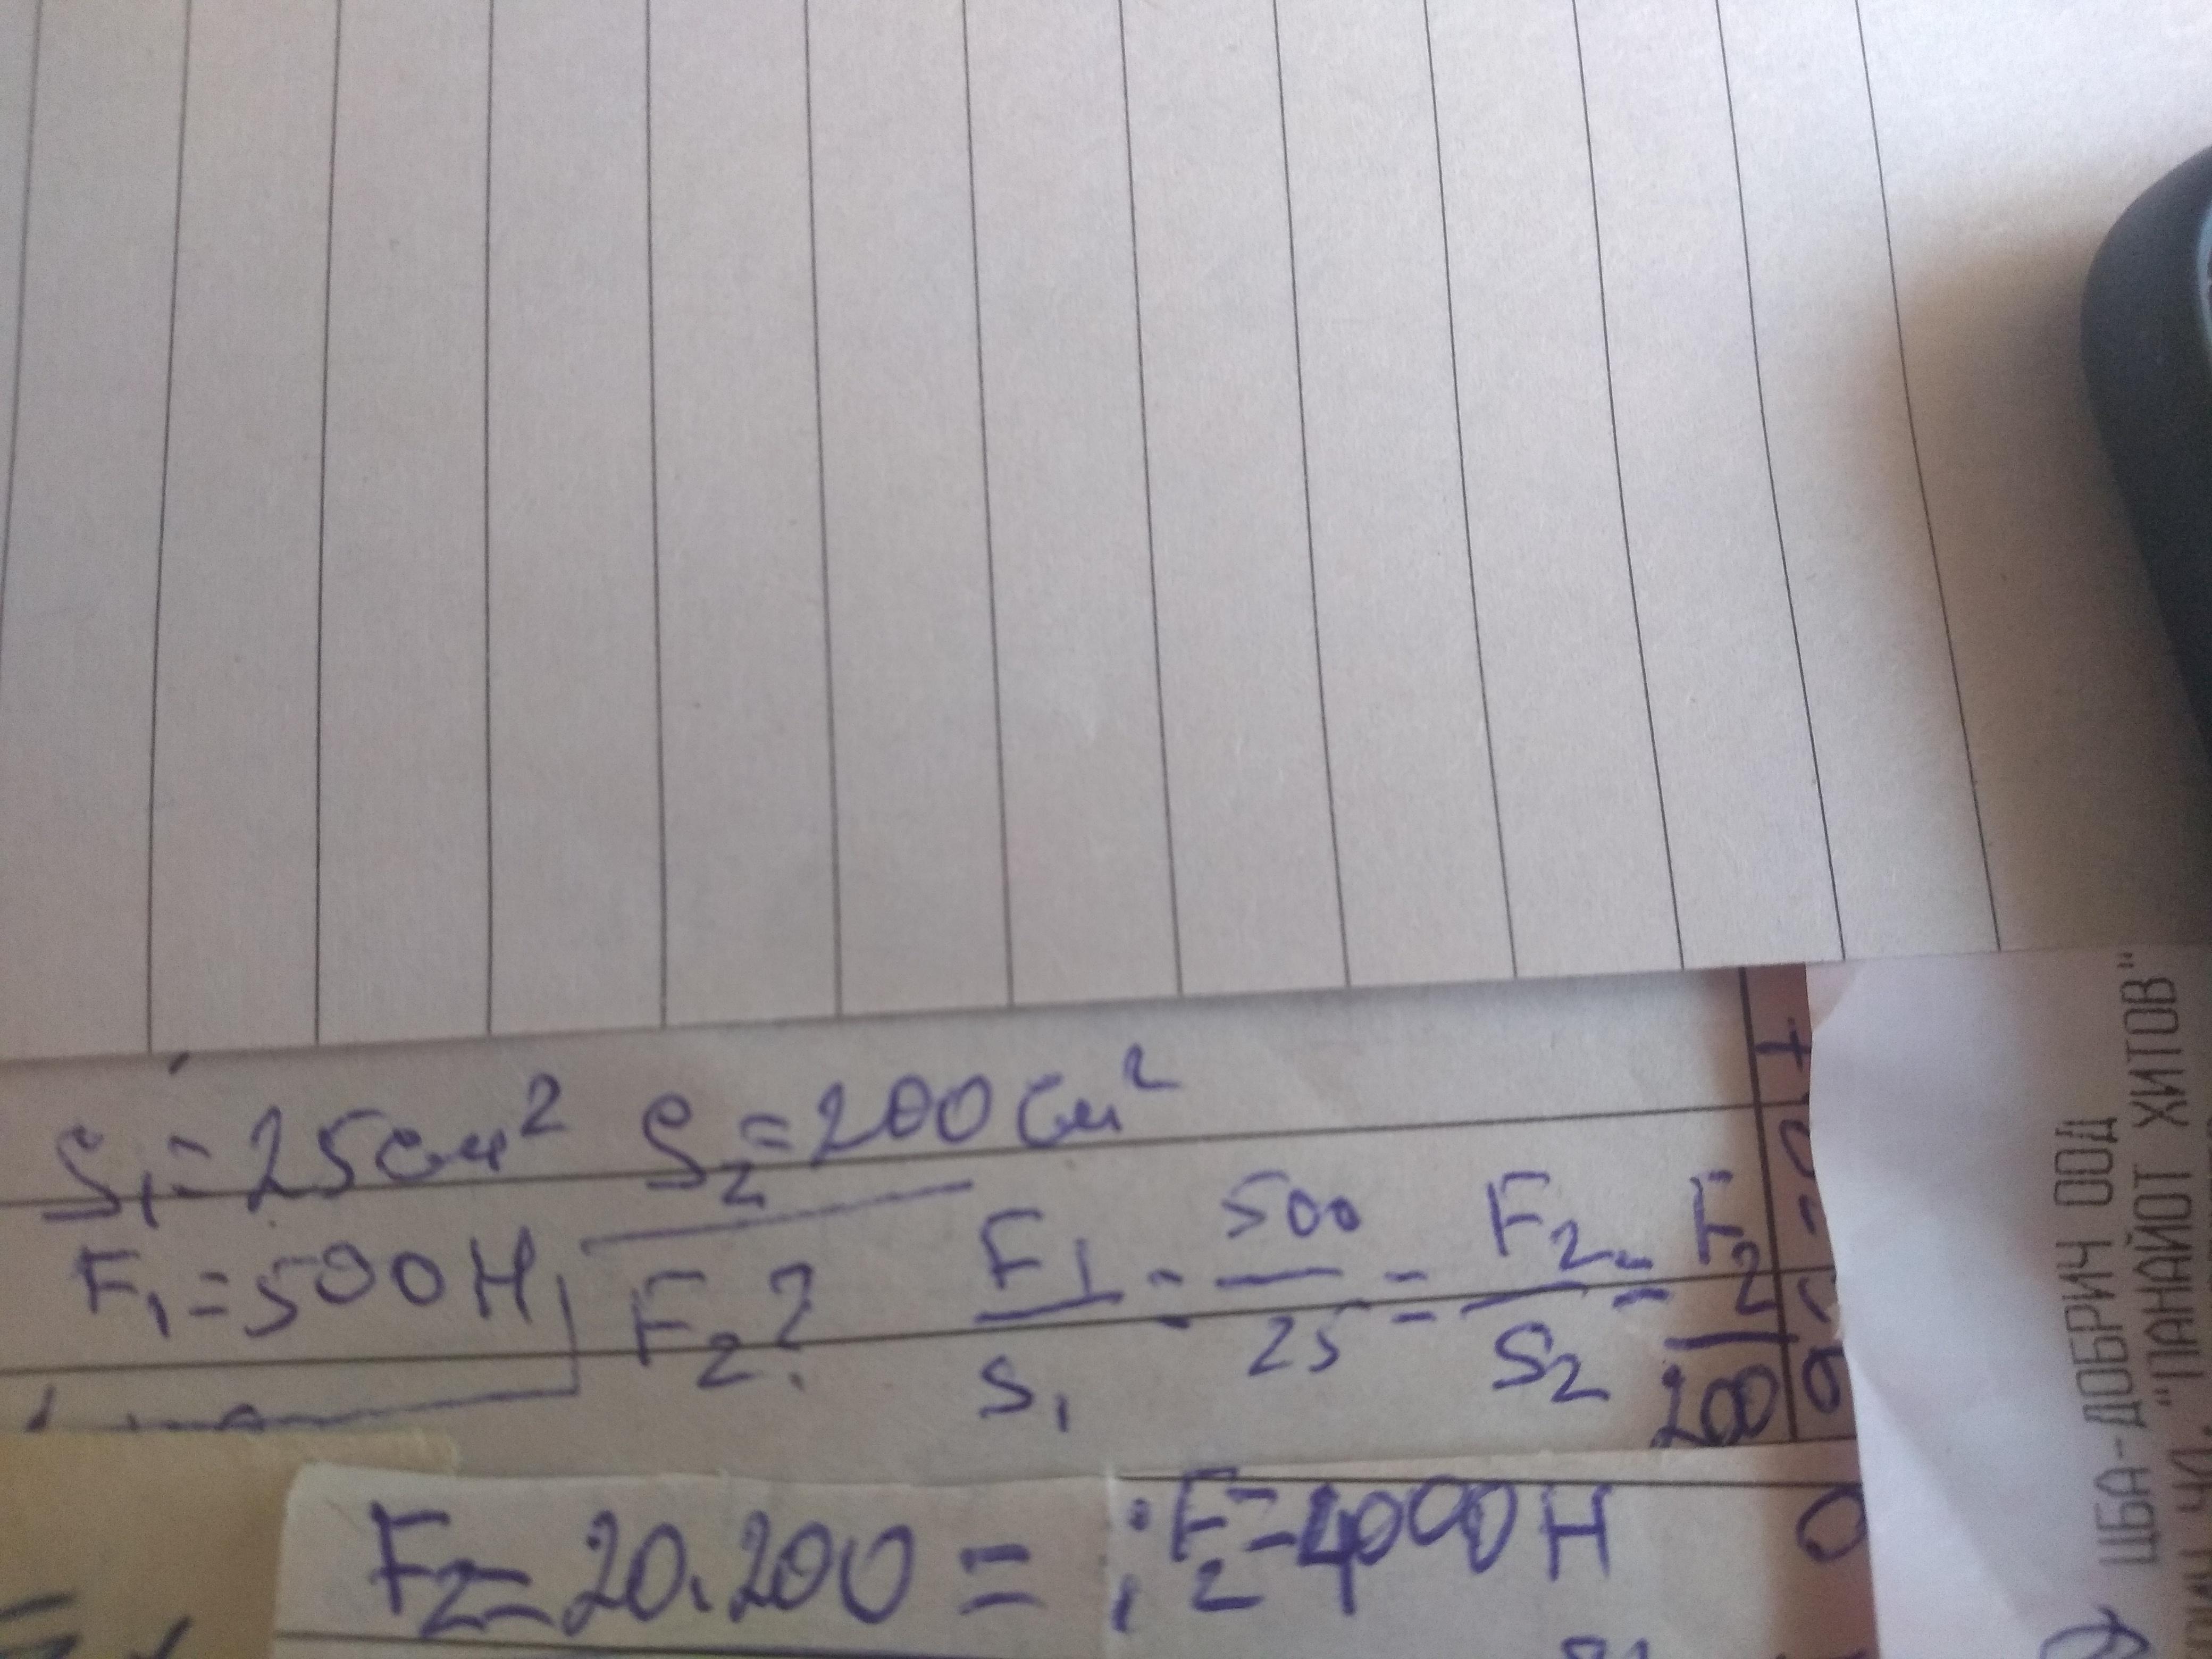 S₁ = 25cm² S₂ = 200cm²
F₁ = 500H F₂? F₁/S₁ = 500/25 = F₂/S₂ = F₂/200
F₂ = 20.200 = ; F₂ = 4000H
ЦБА-ДОБРИЧ ООД
"ПАНАЙОТ ХИТОВ"